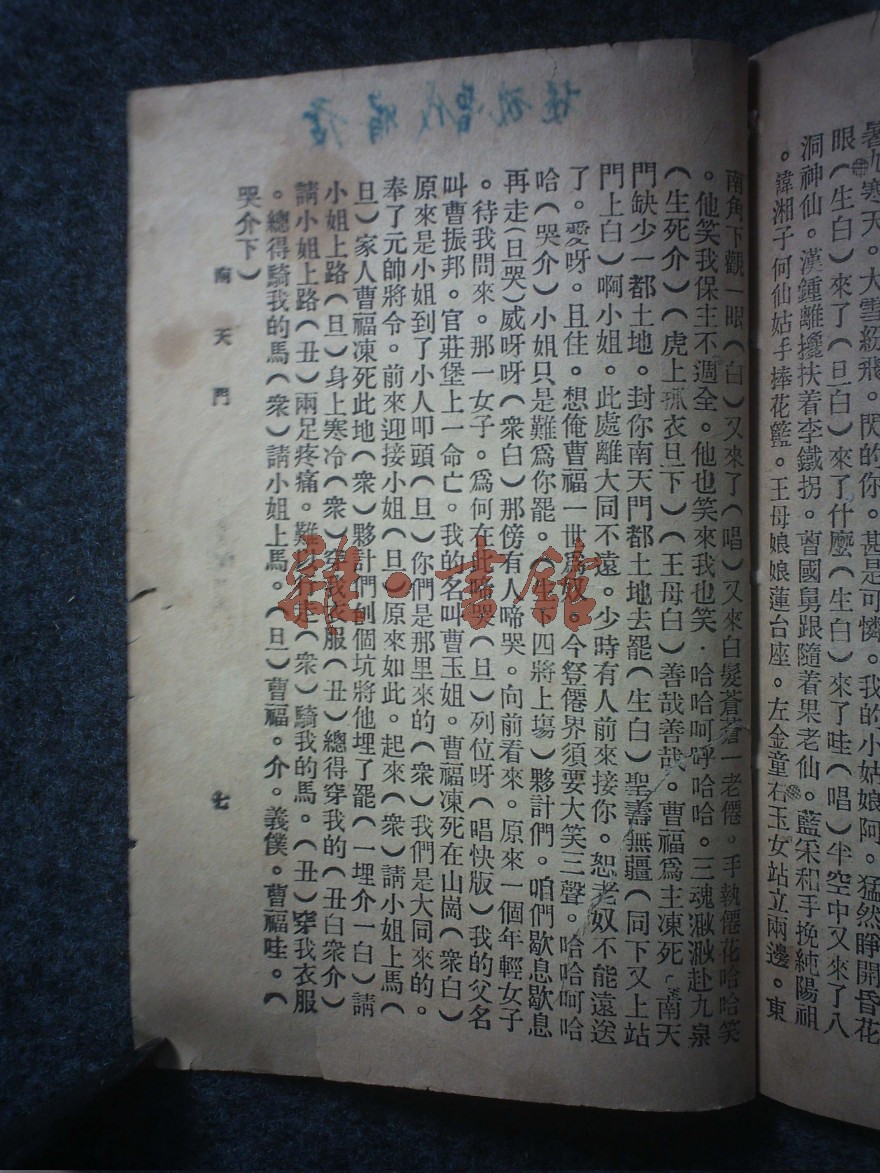 暑九寒天。大雪紛飛。閃的你。甚是可憐。我的小姑娘阿。猛然睜開昏花
眼（生白）來了（旦白）來了什麼（生白）來了哇（唱）半空中又來了八
洞神仙。漢鍾離攙扶着李鐵拐。曺國舅跟隨着果老仙。藍采和手挽純陽祖
。諱湘子何仙姑手捧花籃。王母娘娘蓮台座。左金童右玉女站立兩邊。東
南角下觀一眼（白）又來了（唱）又來白髮蒼蒼一老僊。手執僊花哈哈笑
。他笑我保主不週全。他也笑來我也笑．哈哈呵呼哈哈。三魂溵溵赴九泉
（生死介）（虎上孤衣旦下）（王母白）善哉善哉。曹福爲主凍死。南天
門缺少一都土地。封你南天門都土地去罷（生白）聖壽無疆（同下又上站
門上白）啊小姐。此處離大同不遠。少時有人前來接你。恕老奴不能遠送
了。愛呀。且住。想俺曹福一世爲奴。今登僊界須要大笑三聲。哈哈呵哈
哈（哭介）小姐只是難爲你罷。（生下四將上塲）夥計們。咱們歇息歇息
再走（旦哭）威呀呀（衆白）那傍有人啼哭。向前看來。原來一個年輕女子
。待我問來。那一女子。爲何在此啼哭（旦）列位呀（唱快版）我的父名
叫曹振邦。官莊堡上一命亡。我的名叫曹玉姐。曹福凍死在山崗（衆白）
原來是小姐到了小人叩頭（旦）你們是那里來的（衆）我們是大同來的。
奉了元帥將令。前來迎接小姐（旦）原來如此。起來（衆）請小姐上馬（
旦）家人曹福凍死此地（衆）夥計們刨個坑將他埋了罷（一埋介一白）請
小姐上路（旦）身上寒冷（衆）穿我衣服（丑）總得穿我的（丑白衆介）
請小姐上路（丑）兩足疼痛。難以行走（衆）騎我的馬。（丑）穿我衣服
。總得騎我的馬（衆）請小姐上馬。（旦）曹福。介。義僕。曹福哇。（
哭介下）
南天門
七